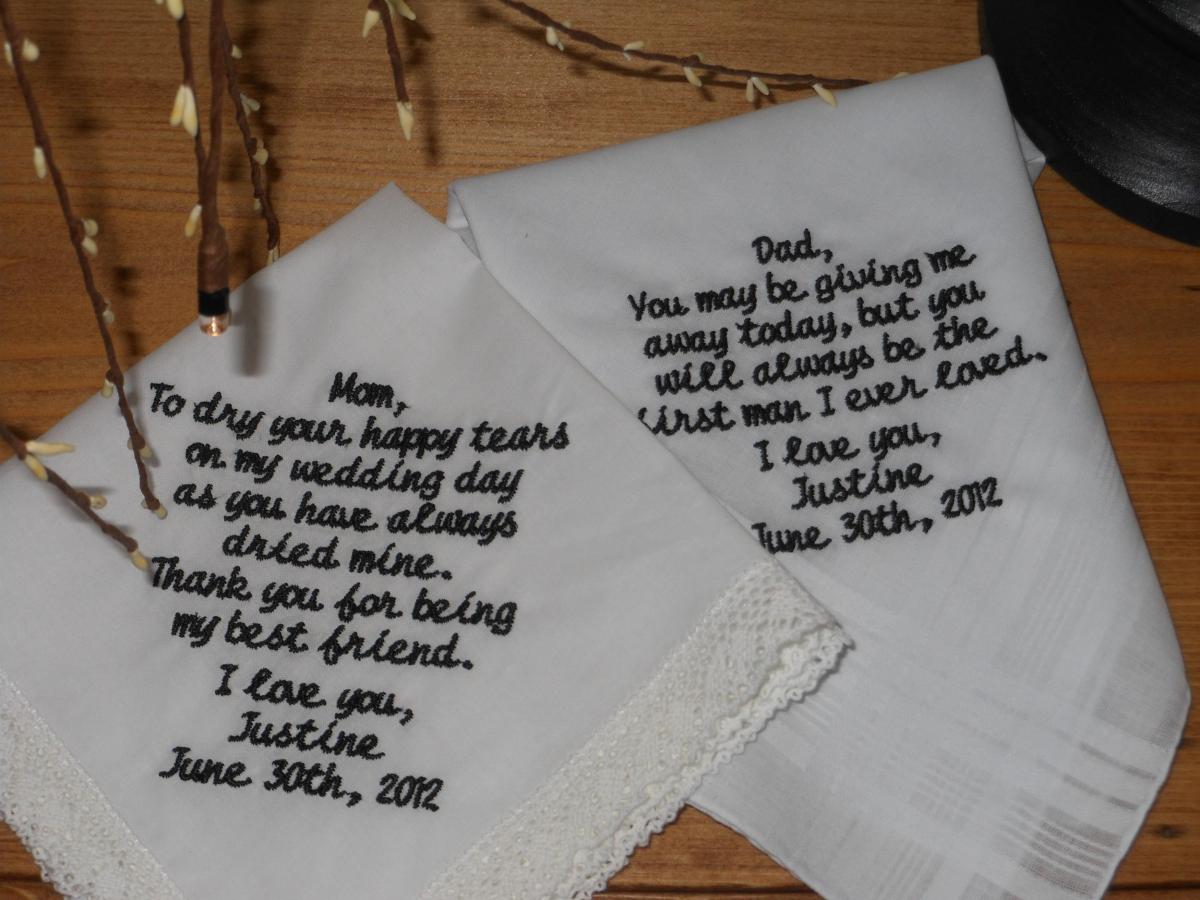 Mom,
To dry your happy tears
on my wedding day
as you have always
dried mine.
Thank you for being
my best friend.
I love you,
Justine
June 30th, 2012
Dad,
You may be giving me
away today, but you
will always be the
first man I ever loved.
I love you,
Justine
June 30th, 2012